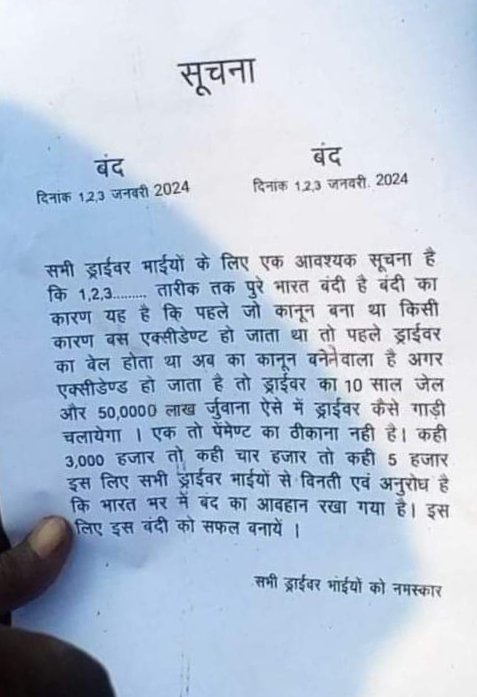 सूचना
बंद बंद
दिनांक 1,2,3 जनवरी 2024 दिनांक 1,2,3 जनवरी. 2024
सभी ड्राईवर भाईयों के लिए एक आवश्यक सूचना है
कि 1,2,3......... तारीक तक पुरे भारत बंदी है बंदी का
कारण यह है कि पहले जो कानून बना था किसी
कारण बस एक्सीडेण्ट हो जाता था तो पहले ड्राईवर
का बेल होता था अब का कानून बनेनेवाला है अगर
एक्सीडेण्ड हो जाता है तो ड्राईवर का 10 साल जेल
और 50,0000 लाख र्जुवाना ऐसे में ड्राईवर कैसे गाड़ी
चलायेगा । एक तो पेंमेण्ट का ठीकाना नही है। कही
3,000 हजार तो कही चार हजार तो कही 5 हजार
इस लिए सभी ड्राईवर भाईयों से विनती एवं अनुरोध है
कि भारत भर में बंद का आवहान रखा गया है। इस
लिए इस बंदी को सफल बनायें ।
सभी ड्राईवर भांईयों को नमस्कार